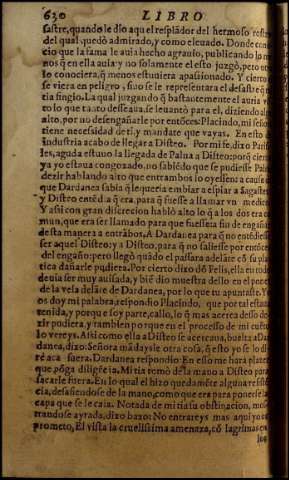 620 LIBRO
sastre, quando le dio aqui el resplãdor del hermoso rostro
del qual quedò admirado, y como eleuado. Donde conocio
que la fama le auia hecho agrauio, publicando lo menos
q̃ en ella auia y no solamente esto juzgò, pero
lo conociera, q̃ menos estuuiera apassionado. Y cierto
se viera en peligro, sino se le representara el desastre q̃
tia fingio. La qual juzgando q̃ bastantemente el auria visto
lo que tãto desseaua, se leuantò para el, diziendo al
alto, por no desengañarle por entõces: Placindo, mi señora
tiene necessidad de ti, y mandate que vayas. En esto
industria acabo de llegar a Disteo. Por mi fe, dixo Parisiles,
aguda estuuo la llegada de Palna a Disteo: porq̃ cierto
ya yo estaua congoxado, no sabiẽdo que se pudiesse Palna
dezir hablando alto que entrambos lo oyessen: a causa
que Dardanea sabia q̃ le queria embiar a espiar a Sagastes
y Disteo entẽdia q̃ era, para q̃ fuesse a llamar vn medico
Y assi con gran discrecion hablò alto lo q̃ a los dos era comun,
que era ser llamado para que fuesse: a fin de engañar
desta manera a entrãbos. A Dardanea para q̃ no entẽdiesse
ser aquel Disteo: y a Disteo, para q̃ no saliesse por entõces
del engaño: pero llegò quãdo el passara adelãte cõ su platica
dañarle pudiera. Por cierto dixo dõ Felis, ella en todo
deuia ser muy auisada, y biẽ dio muestra dello en el recato
de la vela delãte de Dardanea, por lo que tu apuraste. Yo
os doy mi palabra, respondio Placindo, que por tal estaua
tenida, y porque soy parte, callo, lo q̃ mas acerca desso dezir
pudiera, y tambien porque en el processo de mi cuẽto
lo vereys. Assi como ella a Disteo se acercaua, buelta a Dardanea,
dixo: Señora mãdayle otra cosa, q̃ esto yo se lo dire
acà fuera. Dardanea respondio: En esso me harà plazer
que põga diligẽcia. Mi tia tomò de la mano a Disteo para
sacarle fuera. En lo qual el hizo quedamẽte alguna resistẽcia,
desasiendose de la mano, como que era para ponerse la
capa que se le caia. Notada de mi tia su obstinacion, mostrandose
ayrada, dixo baxo: No entrareys mas aqui yo os
prometo, El vista la cruelissima amenaza, cõ lagrimas en
los